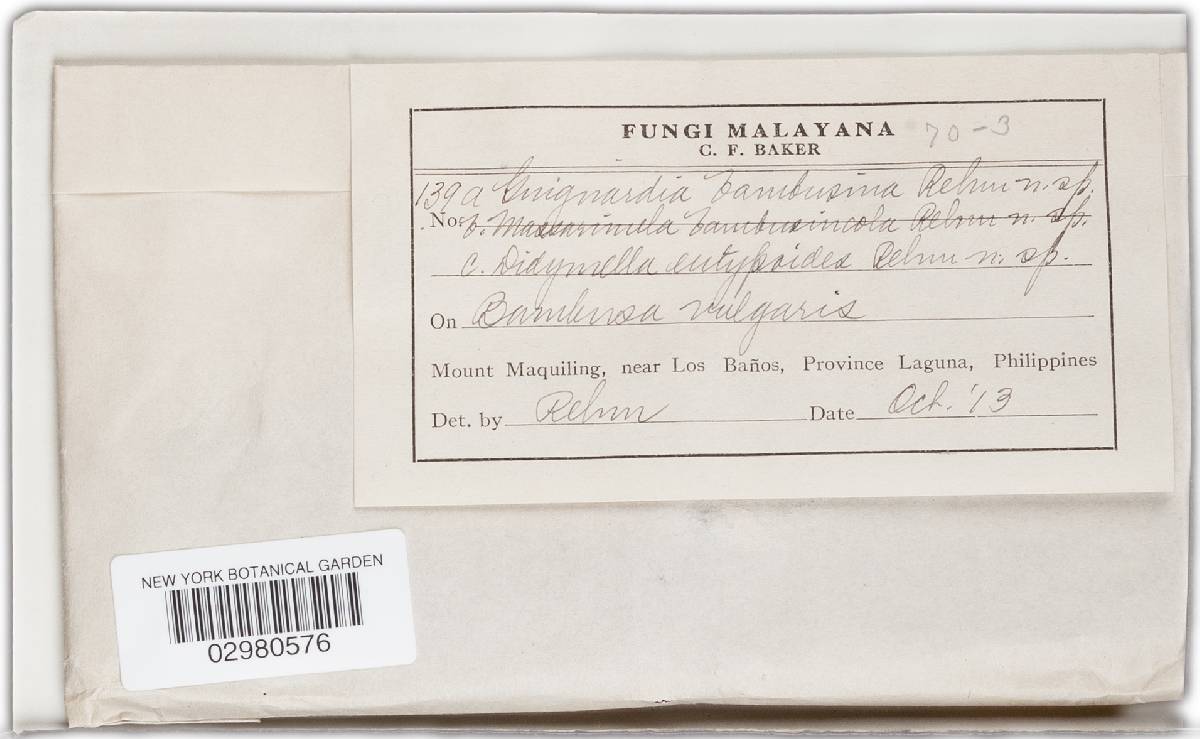 FUNGI MALAYANA 70-3
C. F. BAKER
139 a Guignardia bambusina Rehm n. sp.
No. b. Massarinula bambusincola Rehm n. sp.
c. Didymella eutypoides Rehm n. sp.
On Bambusa vulgaris
Mount Maquiling, near Los Baños, Province Laguna, Philippines
Det. by Rehm Date Oct. '13
NEW YORK BOTANICAL GARDEN
02980576